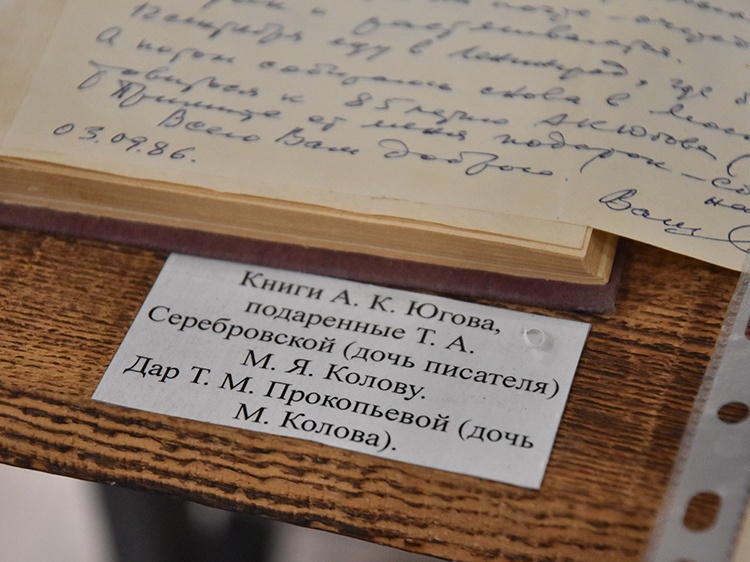 сентября еду в Ленинград, где
А потом собираюсь снова в
товиться к 85летию А.К.Югова (
Примите от меня подарок –
Всего Вам доброго.
03.09.86.
Книги А. К. Югова,
подаренные Т. А.
Серебровской (дочь писателя)
М. Я. Колову.
Дар Т. М. Прокопьевой (дочь
М. Колова).